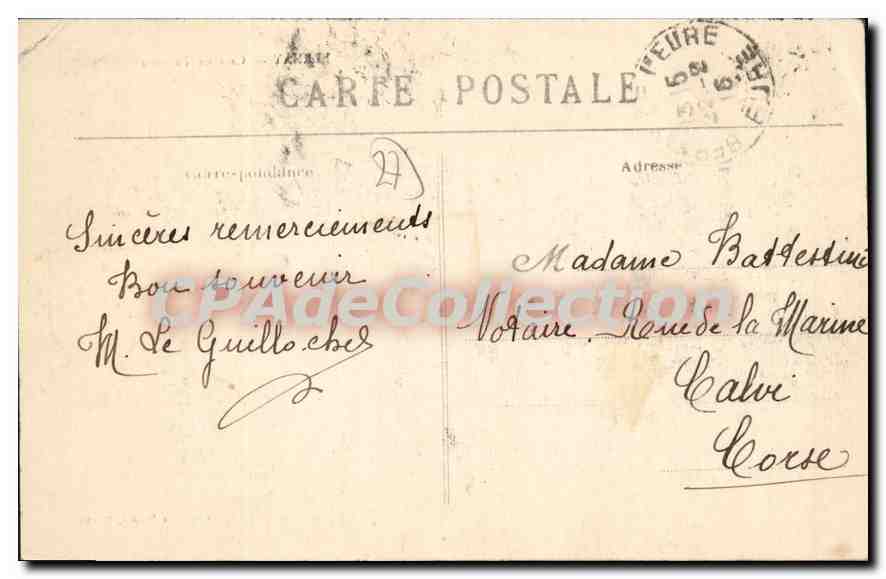 CARTE POSTALE
Correspondance
27
Adresse
L'EURE
EURE
Sincères remerciements
Bon souvenir
M. Le Guillochel
Madame Battestini
Notaire. Rue de la Marine
Calvi
Corse
CPAdeCollection